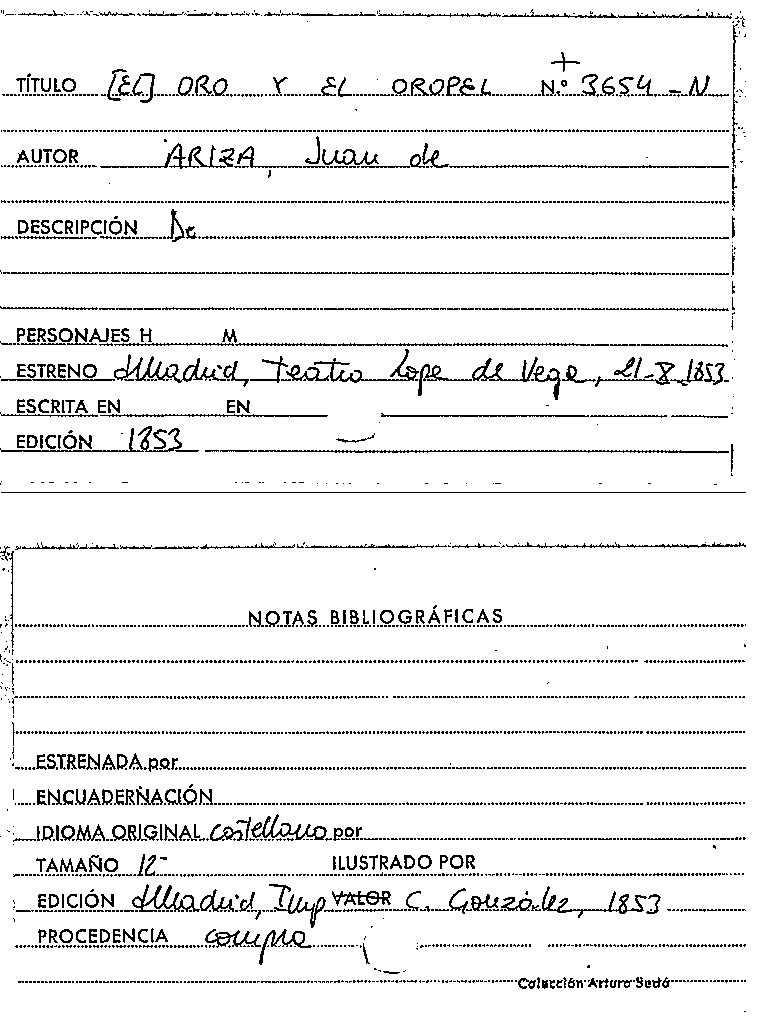 +
TÍTULO [EL] ORO Y EL OROPEL N.º 3654-N
AUTOR ARIZA, Juan de
DESCRIPCIÓN De
PERSONAJES H M
ESTRENO Madrid, Teatro Lope de Vega, 21-X-1853
ESCRITA EN EN
EDICIÓN 1853
NOTAS BIBLIOGRÁFICAS
ESTRENADA por
ENCUADERNACIÓN
IDIOMA ORIGINAL castellano por
TAMAÑO 12- ILUSTRADO POR
EDICIÓN Madrid, Imp VALOR C. González, 1853
PROCEDENCIA compra
Colección Arturo Sedó